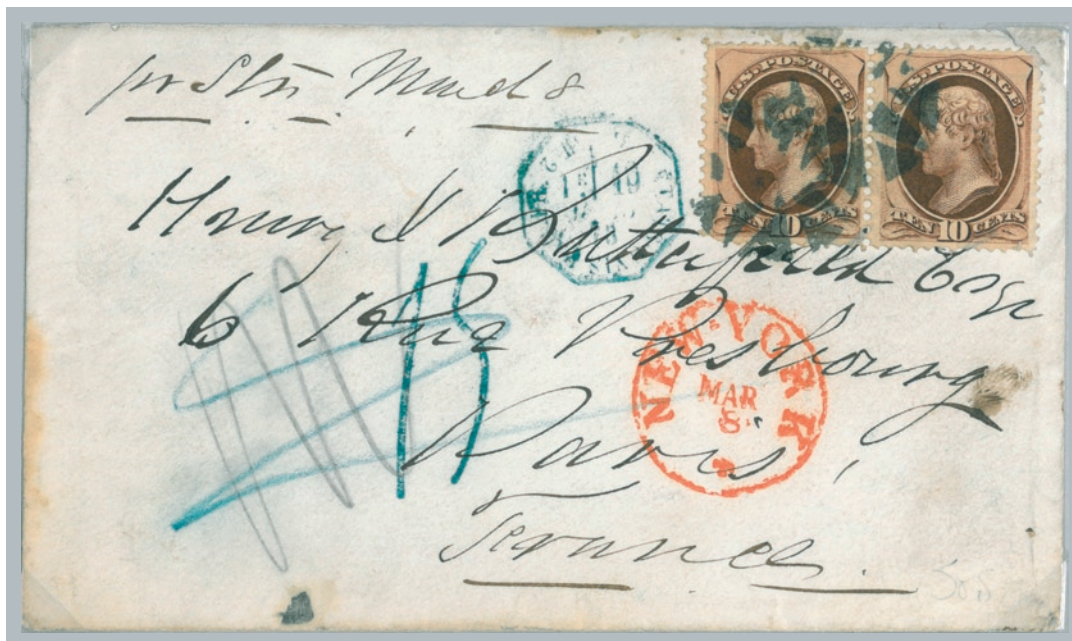 pr Str March 8
U.S. POSTAGE
TEN 10 CENTS
U.S. POSTAGE
TEN 10 CENTS
19
Henry I Butterfield Esqr
6 Rue Presbourg
Paris,
France.
15
NEW-YORK
MAR
8